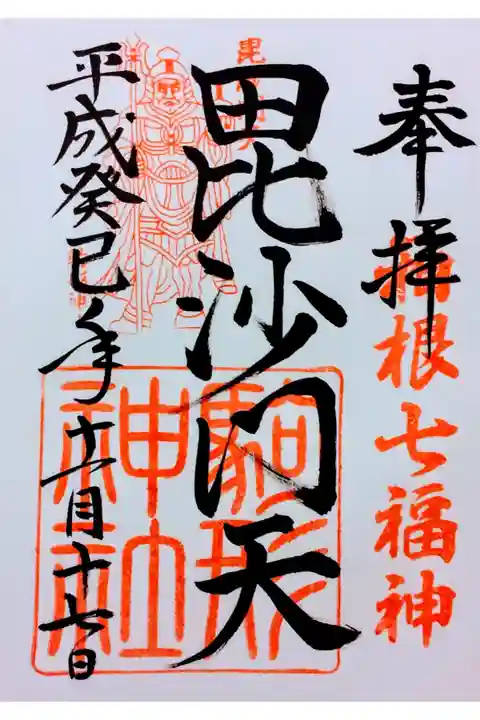 奉拝
箱根七福神
毘沙門天
駒形
神社
平成癸巳年十一月十七日